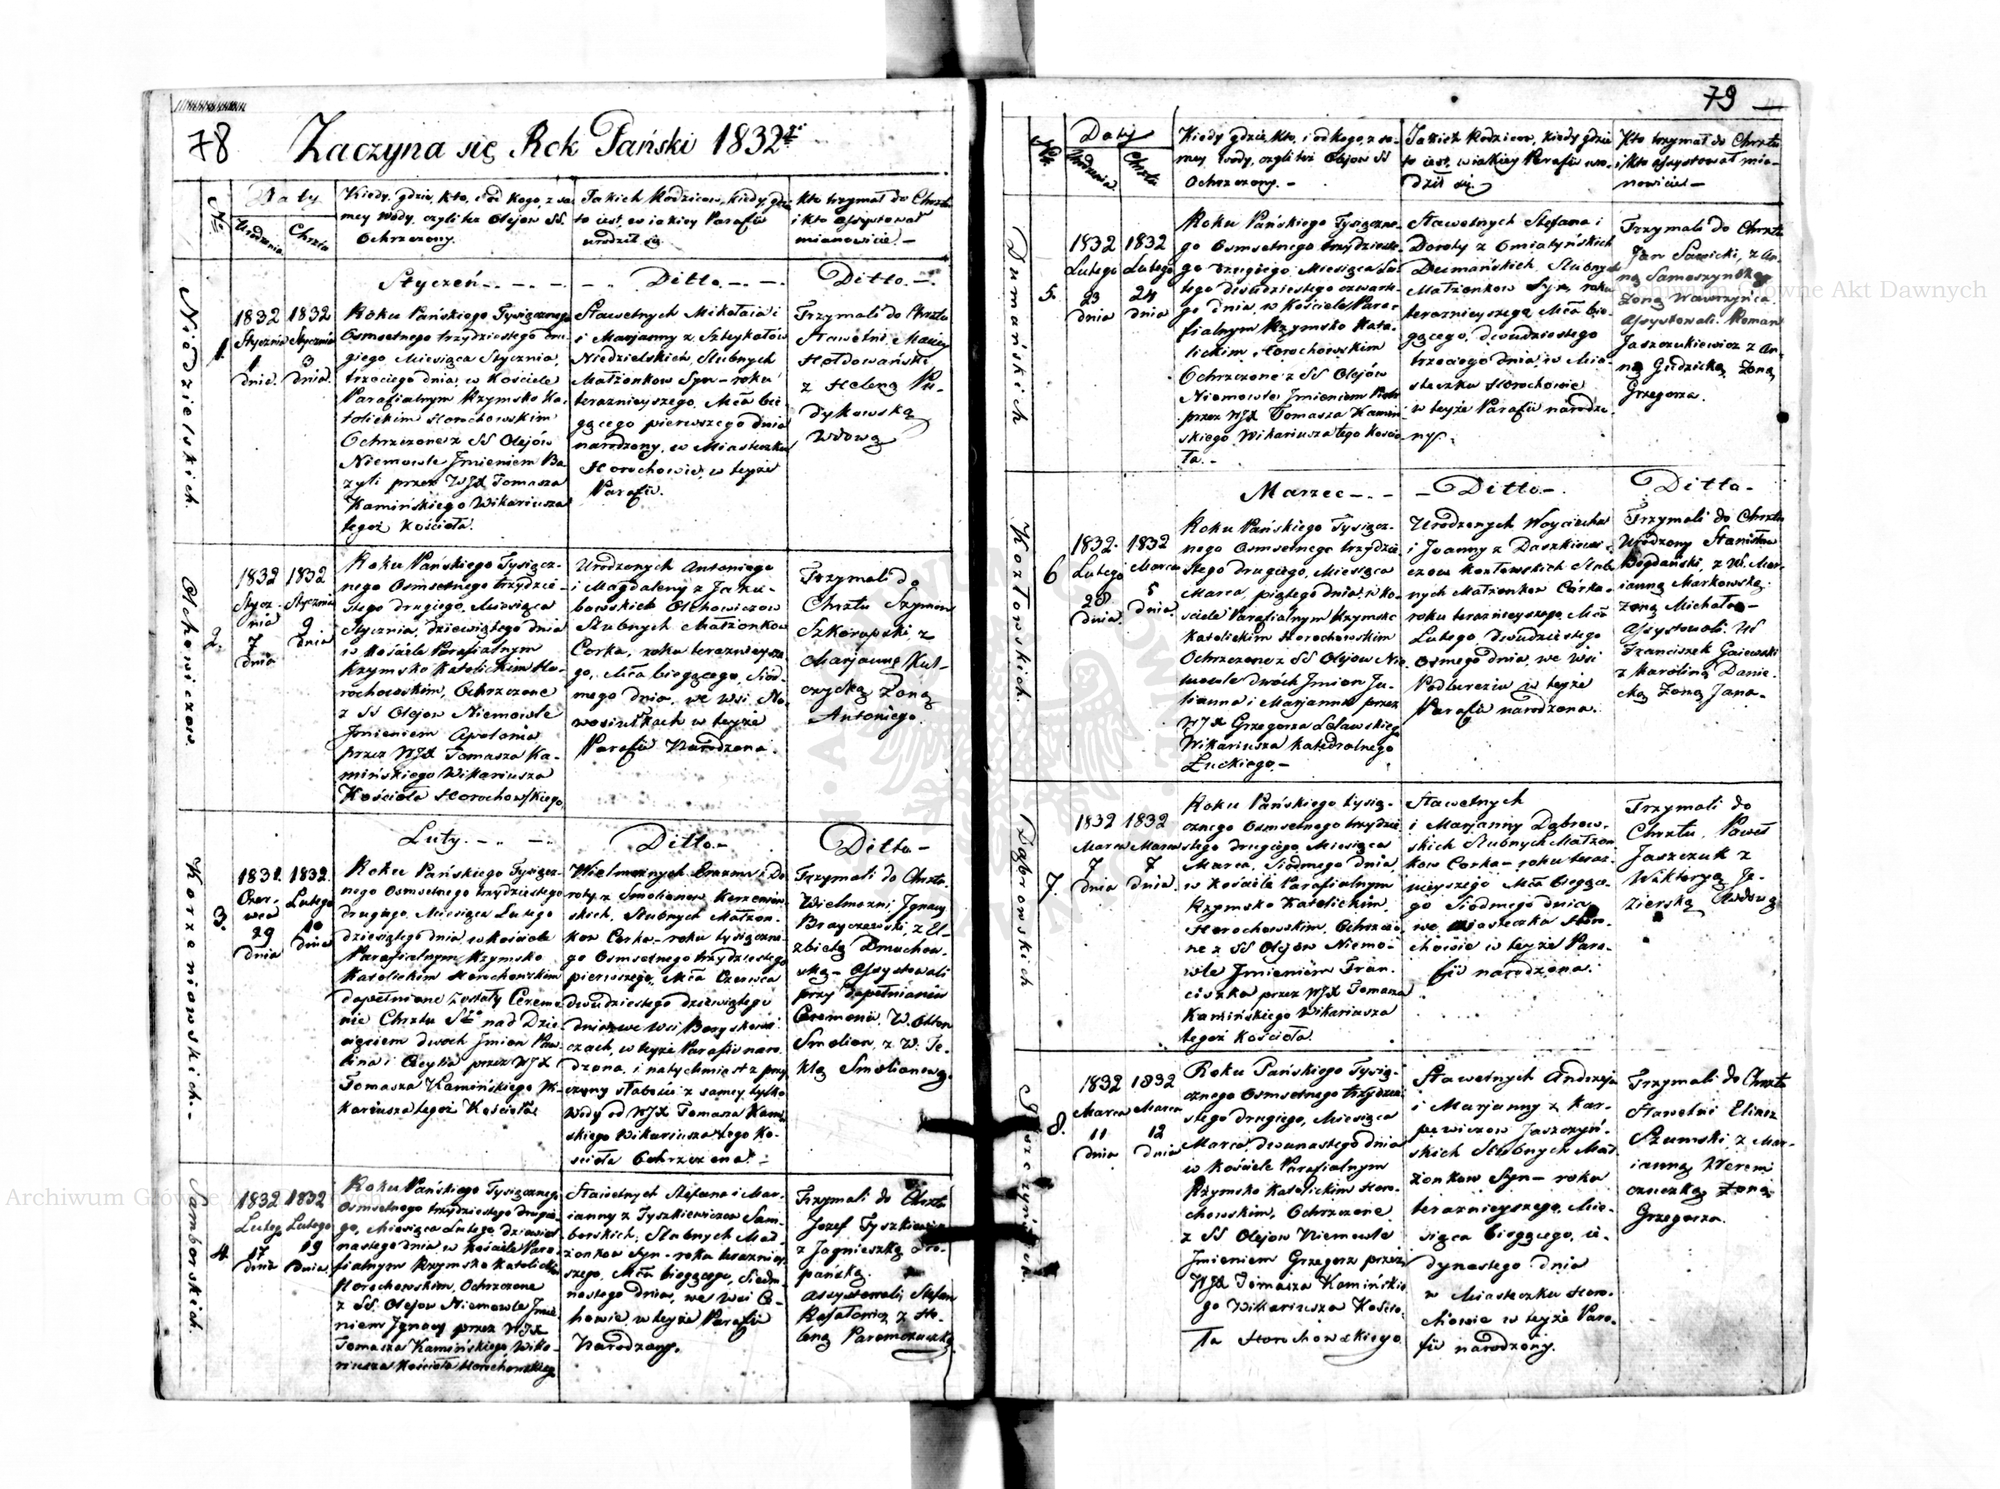 78
Zaczyna się Rok Pański 1832
No
Daty
Urodzenia
Chrztu
Kiedy, gdzie, kto, i od kogo, z sa
mey wody, czyli też Olejow SS.
Ochrzczony.
Jakich Rodzicow, kiedy, gdzie
to iest, w iakiey Parafii
urodził się
Kto trzymał do Chrztu
i kto assystował
mianowicie. –
Niedzielskich.
1.
1832
Stycznia
1
dnia.
1832
Stycznia
3
dnia.
Styczeń
Roku Pańskiego Tysiącznego
Osmsetnego trzydziestego dru
giego Miesiąca Stycznia,
trzeciego dnia, w Kosciele
Parafialnym Rzymsko Ka
tolickim Horochowskim
Ochrzczone z SS Olejów
Niemowle Jmieniem Ba
zyli przez WJX Tomasza
Kamińskiego Wikariusza
tegoż Kościoła.
Ditto
Sławetnych Mikołaia i
i Marjanny z Sztykałów
Niedzielskich, Slubnych
Małżonkow Syn – roku
teraznieyszego, Mca bie
gącego pierwszego dnia
narodzony, w Miasteczku
Horochowie, w teyże
Parafii.
Ditto
Trzymali do Chrztu
Sławetni Maciej
Hołdowański
z Heleną Ra
dykowską
Wdową
Olchowiczow.
2.
1832
Stycz-
nia
7
dnia
1832
Stycznia
9
dnia
Roku Pańskiego Tysiącz-
nego Osmsetnego trzydzie-
stego drugiego, Miesiąca
Stycznia, dziewiątego dnia
w Kosciele Parafialnym
Rzymsko Katolickim Ho-
rochowskim, Ochrzczone
z SS Olejow Niemowle
Jmieniem Apolonia
przez WJX Tomasza Ka-
mińskiego Wikariusza
Kościoła Horochowskiego,
Urodzonych Antoniego
i Magdaleny z Jaku-
bowskich Olchowiczow
Slubnych Małżonkow
Corka, roku teraznieysze
go, Mca biegącego, Siod-
mego dnia, we wsi No-
wosiułkach w teyże
Parafii Narodzona.
Trzymali do
Chrztu Szymon
Szkoropski z
Marjanną Kul-
czycką Zoną
Antoniego.
Korzeniowskich.–
3.
1831.
Czer-
wca
29
dnia
1832.
Lutego
10
dnia
Luty.
Roku Pańskiego Tysiącz-
nego Osmsetnego trzydziestego
drugiego, Miesiąca Lutego
dziesiątego dnia, w Kościele
Parafialnym Rzymsko
Katolickim Horochowskim
dopełnione zostały Ceremo
nie Chrztu Sgo nad Dzie
cięciem dwoch Jmion Pau
lina i Acylia przez WJX
Tomasza Kamińskiego Wi
kariusza tegoż Kościoła
Ditto
Wielmożnych Erazma i Do
roty z Smolianow Korzeniow
skich, Slubnych Małżon-
kow Corka – roku tysiączne
go Osmsetnego trzydziestego
pierwszego, Mca Czerwca
dwudziestego dziewiątego
dnia we wsi
czach, w teyże Parafii naro
dzona, i natychmiast z przy
czyny słabości z samey tylko
wody od WJX Tomasza Kami
skiego Wikariusza tego Ko-
ścioła Ochrzczona. –
Ditto
Trzymali do Chrztu
Wielmożni Jgnacy
z El
zbietą
ską – Assystowali
przy dopełnianiu
Ceremonii, W. Otton
Smolian z W. Te-
klą Smolianową.
Samborskich.
4.
1832
Lutego
17
dnia
1832
Lutego
19
dnia.
Roku Pańskiego Tysiącznego
Osmsetnego trzydziestego drugie
go, Miesiąca Lutego, dziewięt
nastego dnia, w Kościele Para-
fialnym Rzymsko Katolickim
Horochowskim, Ochrzczone
z SS. Olejow Niemowle Jmie
niem Jgnacy przez WJX
Tomasza Kamińskiego, Wika-
riusza Kościoła Horochowskiego
Sławetnych Stefana i Mar-
ianny z Tyszkiewiczow Sam-
borskich, Slubnych Mał-
żonkow Syn – roku teraznie
szego, Mca biegącego, Siedm
nastego dnia, we wsi
w teyże Parafii
Narodzony.
Trzymali do Chrztu
Jozef Tyszkiewicz
z Jagnieszką
pańską.
Assystowali, Stefan
z He-
leną
79
Nr
Daty
Urodzenia.
Chrztu
Kiedy gdzie, Kto, i od kogo, z sa-
mey wody, czyli też Olejow SS
Ochrzczony. –
Jakich Rodzicow, kiedy gdzie
to iest, w iakiey Parafii uro-
dził się
Kto trzymał do Chrztu
i kto assystował mia-
nowicie –
Dumańskich
5.
1832
Lutego
23
dnia
1832
Lutego
24
dnia
Roku Pańskiego Tysiączne-
go Osmsetnego trzydzieste-
go drugiego, Miesiąca Lu
tego dwudziestego czwarte
go dnia, w Kościele Para-
fialnym Rzymsko Kato-
lickim Horochowskim
Ochrzczone z SS Olejów
Niemowle, Jmieniem Piotr
przez WJX Tomasza Kamin-
skiego, Wikariusza tego Koscio
ła. –
Sławetnych Stefana i
Doroty z Gmiatyńskich
Dumańskich, Slubnych
Małżonkow Syn, roku
teraznieyszego, Mca bie-
gącego, dwudziestego
trzeciego dnia, w Mia-
steczku Horochowie
w teyże Parafii narodzo-
ny.
Trzymali do Chrztu
Jan Sawicki, z An-
ną Samoszyńską
Zoną Wawrzyńca.
Assystowali. Roman
Jaszczukiewicz z An-
ną Gudzicką Zoną
Grzegorza.
Kozłowskich.
6
1832.
Lutego
28
dnia.
1832
Marca
5
dnia.
Marzec
Roku Pańskiego Tysiącz-
nego Osmsetnego trzydzie
stego drugiego, Miesiąca
Marca, piątego dnia, w Ko-
sciele Parafialnym Rzymsko
Katolickim Horochowskim
Ochrzczone z SS Olejow Nie-
mowle dwóch Jmion Ju-
lianna i Marjanna przez
WJX Grzegorza
Wikariusza Katedralnego
Łuckiego –
Ditto
Urodzonych Woyciecha
i Joanny z Daszkiewi-
czow Kozłowskich Slub-
nych Małżonkow Córka –
roku teraznieyszego, Mca
Lutego dwudziestego
Osmego dnia, we wsi
Podberezin w teyże
Parafii narodzona.
Ditto
Trzymali do Chrztu
Urodzony Stanisław
Bogdański, z W. Mar
ianną Markowską
Zoną Michała –
Assystowali. W
Franciszek Gaiewski
z Karoliną Danie-
cką Zoną Jana –
Dąbrowskich
7.
1832
Marca
7
dnia
1832
Marca
7
dnia.
Roku Pańskiego tysią-
cznego Osmsetnego trzydzie
stego drugiego, Miesiąca
Marca, Siodmego dnia,
w Kościele Parafialnym
Rzymsko Katolickim,
Horochowskim, Ochrzczo
ne z SS Olejów Niemo-
wle Jmieniem Fran-
ciszka przez WJX Tomasza
Kamińskiego Wikariusza
tegoż Kościoła.
Sławetnych
i Marjanny Dąbrow-
skich Slubnych Małżon-
kow Corka – roku teraz-
nieyszego Mca biegące-
go Siodmego dnia
we Miasteczku Horo-
chowie w teyże Para-
fii narodzona.
Trzymali do
Chrztu, Paweł
Jaszczuk z
Wiktoryą Je-
zierską Wdową
8.
1832
Marca
11
dnia
1832
Marca
12
dnia
Roku Pańskiego Tysią-
cznego Osmsetnego trzydzie
stego drugiego, Miesiąca
Marca, dwunastego dnia
w Kościele Parafialnym
Rzymsko Katolickim Horo-
chowskim, Ochrzczone
z SS Olejow Niemowle
Jmieniem Grzegorz przez
WJX Tomasza Kamińskie
go Wikariusza Kościo-
ła Horochowskiego
Sławetnych Andrzeja
i Marjanny z Kar-
powiczow Jaszczyń-
skich Slubnych Mał
żonkow Syn – roku
teraznieyszego, Mie-
siąca biegącego, ie-
dynastego dnia
w Miasteczku Horo-
chowie w teyże Para-
fii narodzony.
Trzymali do Chrztu
Sławetni Eliasz
Szumski z Mar-
ianną Werem
czuczką Zoną
Grzegorza.
Archiwum Główne Akt Dawnych
Archiwum Główne Akt Dawnych